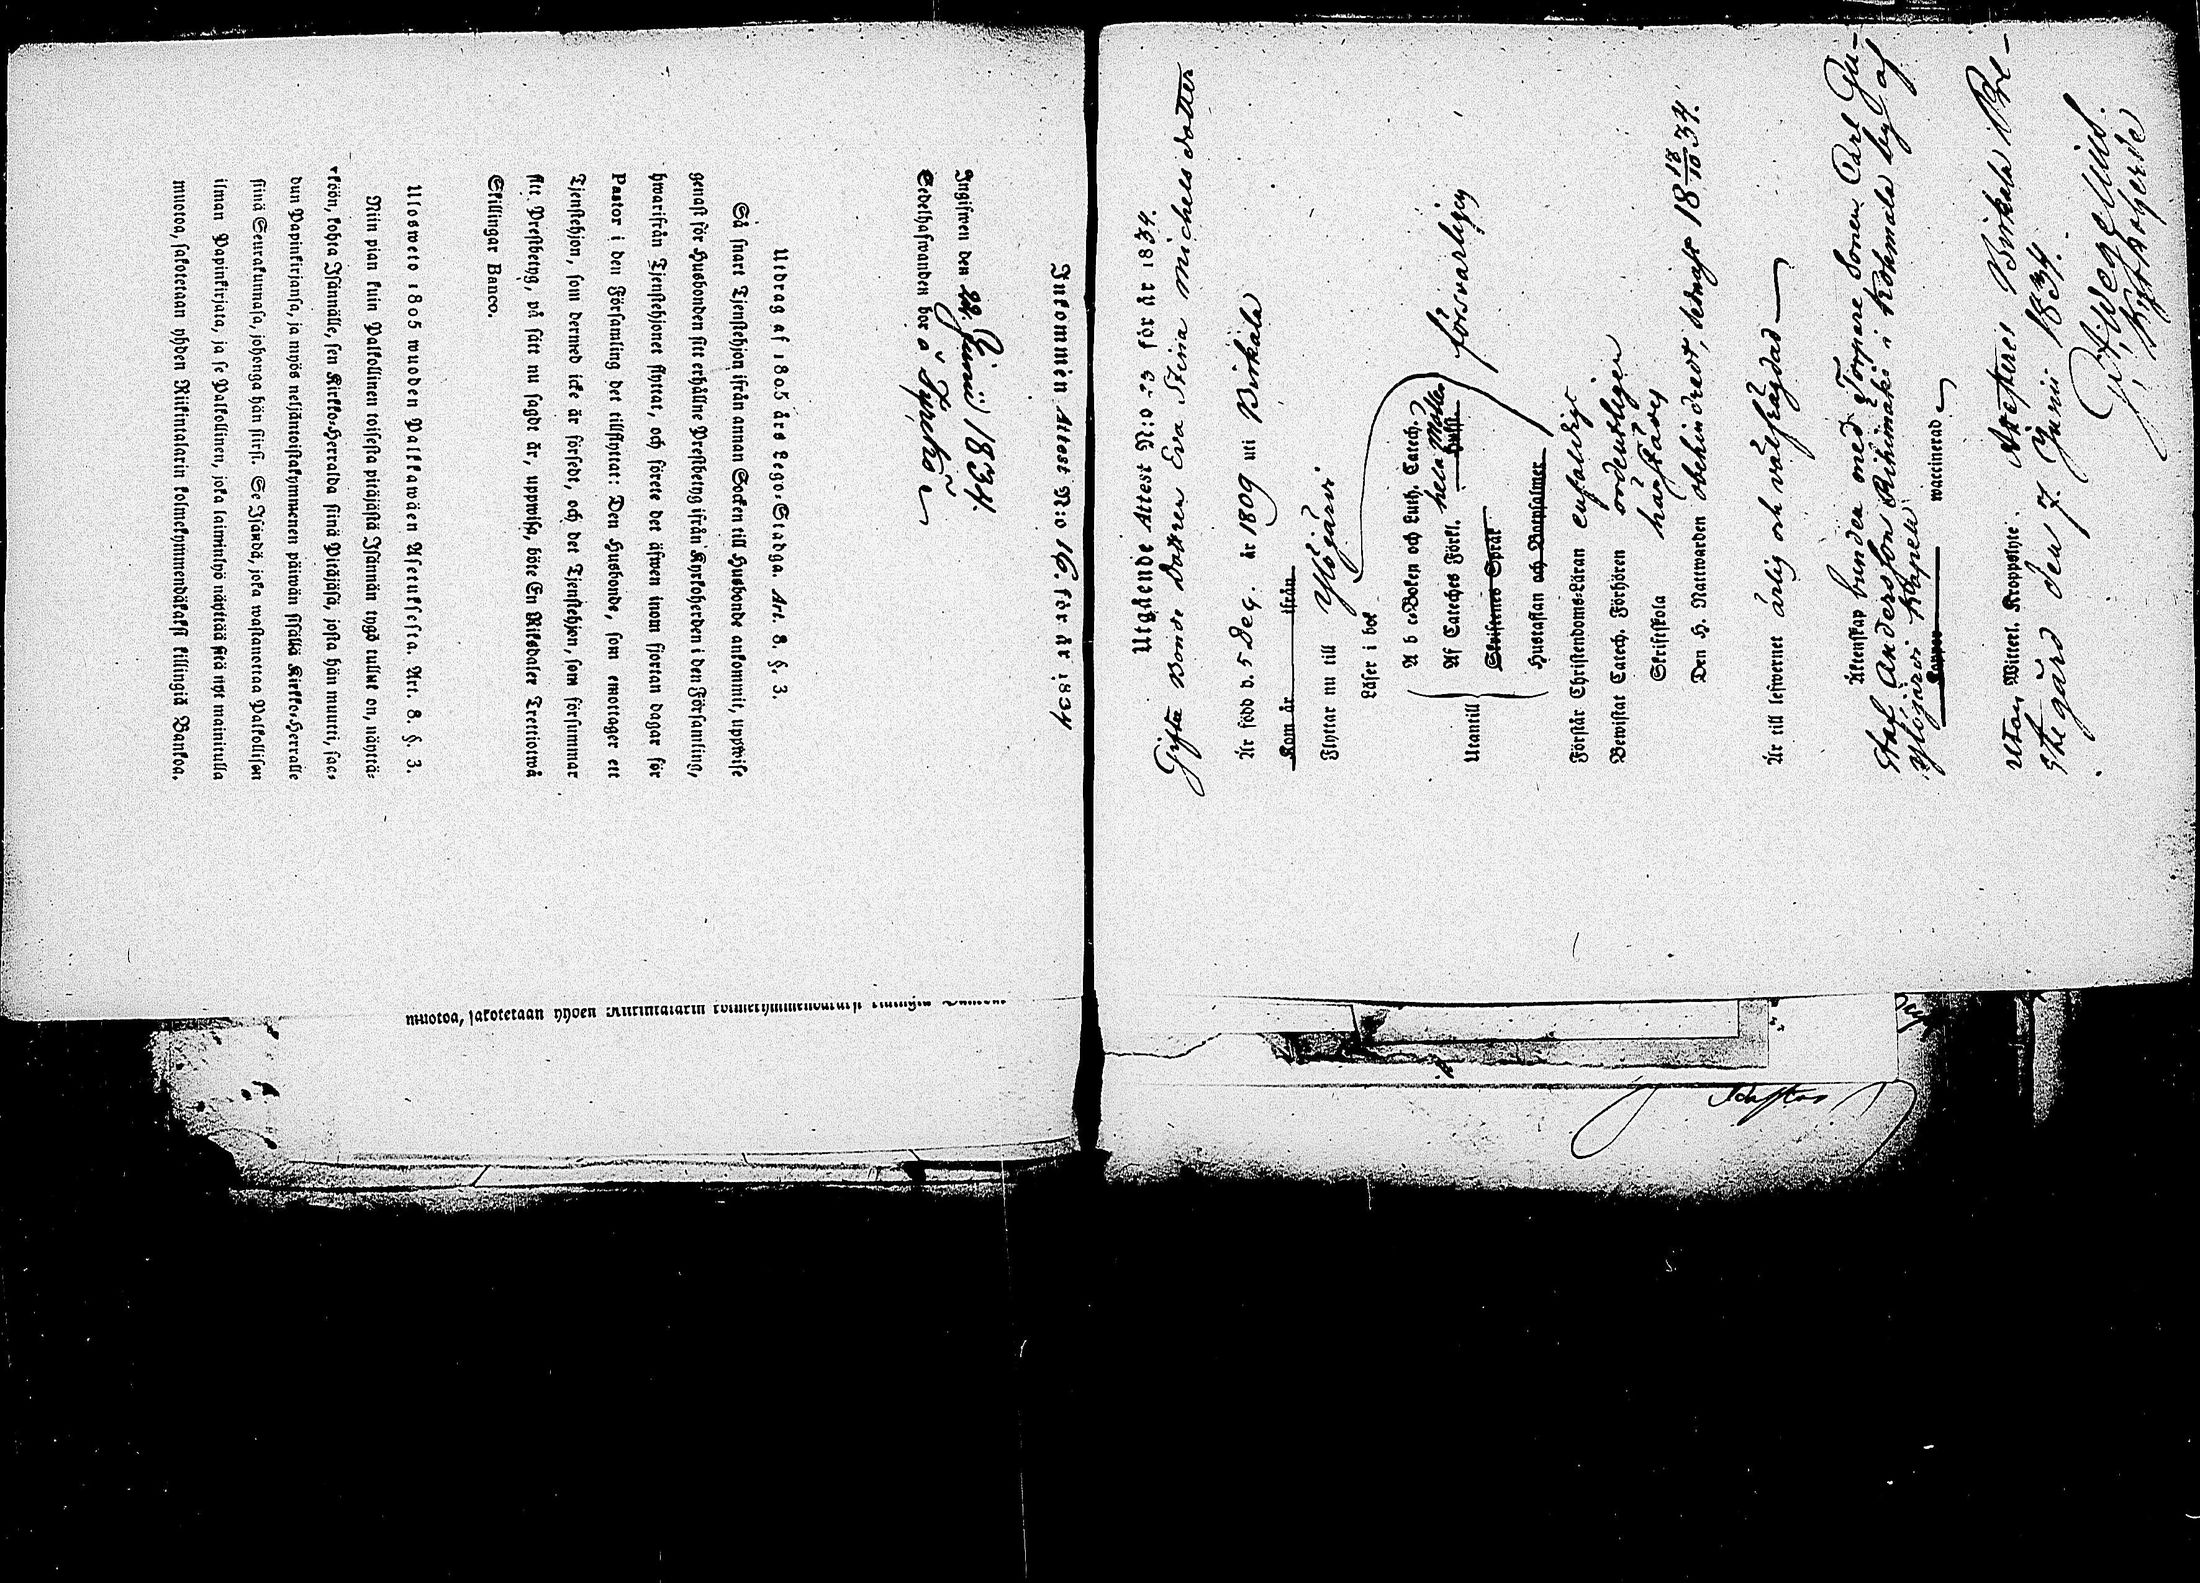 Inkommen Attest N:o 16. för år 1834
Ingifwen den 22. Junii 1834.
Sedelhafwanden bor å
Utdrag af 1805 års Lego-Stadga. Art. 8. §. 3.
Så snart Tjenstehjon ifrån annan Socken till Husbonde ankommit, uppwise
genast för Husbonden sitt erhållne Prestbetyg ifrån Kyrkoherden i den Församling,
hwarifrån Tjenstehjonet flyttat, och förete det äfwen inom fjortan dagar för
Pastor i den Församling det tillflyttar: Den Husbonde, som emottager ett
Tjenstehjon, som dermed icke är försedt, och det Tjenstehjon, som försummar
sitt Prestbetyg, på sätt nu sagdt är, uppwisa, böte En Riksdaler Trettiotwå
Skillingar Banco.
Ulosweto 1805 wuoden Palkkawäen Asetuksesta. Art. 8. §. 3.
Niin pian kuin Palkollinen toisesta pitäjästä Isännän tygö tullut on, näyttä-
köön, kohta Isännälle, sen Kirkko-Herralda siinä Pitäjäsä, josta hän muutti, saa-
dun Papinkirjansa, ja myös neljäntoistakymmenen päiwän sisällä Kirkko-Herralle
siinä Seurakunnasa, johonga hän siirsi. Se Isändä, joka wastanottaa Palkollisen
ilman Papinkirjata, ja se Palkollinen, joka laiminlyö näyttää sitä nyt mainitulla
muotoa, sakotetaan yhden Riikintalarin kolmekymmendäkaksi killingiä Bankoa.
muotoa, sakotetaan yhden Riikintalarin kolmekymmendäkaksi killingiä Bankoa.
Utgående Attest N:o 23 för år 1834.
Gifta Bonde Dottren Eva Stina Michelsdotter
Är född d. 5 Dec. år 1809 uti Birkala
Kom år ifrån
Flyttar nu till Ylöjärvi
Läser i bok
A b c-Boken och Luth. Catech.
Af Cateches Förkl. hela
Skriftenes Språk
Hustaflan och Botpsalmer
Utantill
försvarligen
Förstår Christendoms-Läran enfaldigt
Bewistat Catech. Förhören ordentligen
Skriftskola härstädes
Den H. Nattwarden obehindrad, sednast 18 18/10 34.
Är till lefwernet ärlig och välfrägdad
Äktenskap bunden med Torpare Sonen Carl Gu-
staf Andersson Riihimäki i Kohmala by af
Ylöjärvi Kapell
Koppor waccinerad
Utan Witterl. Kroppslyte. Attesteres Birkala Pre-
stegård den 7. Junii 1834.
Kyrkoherde